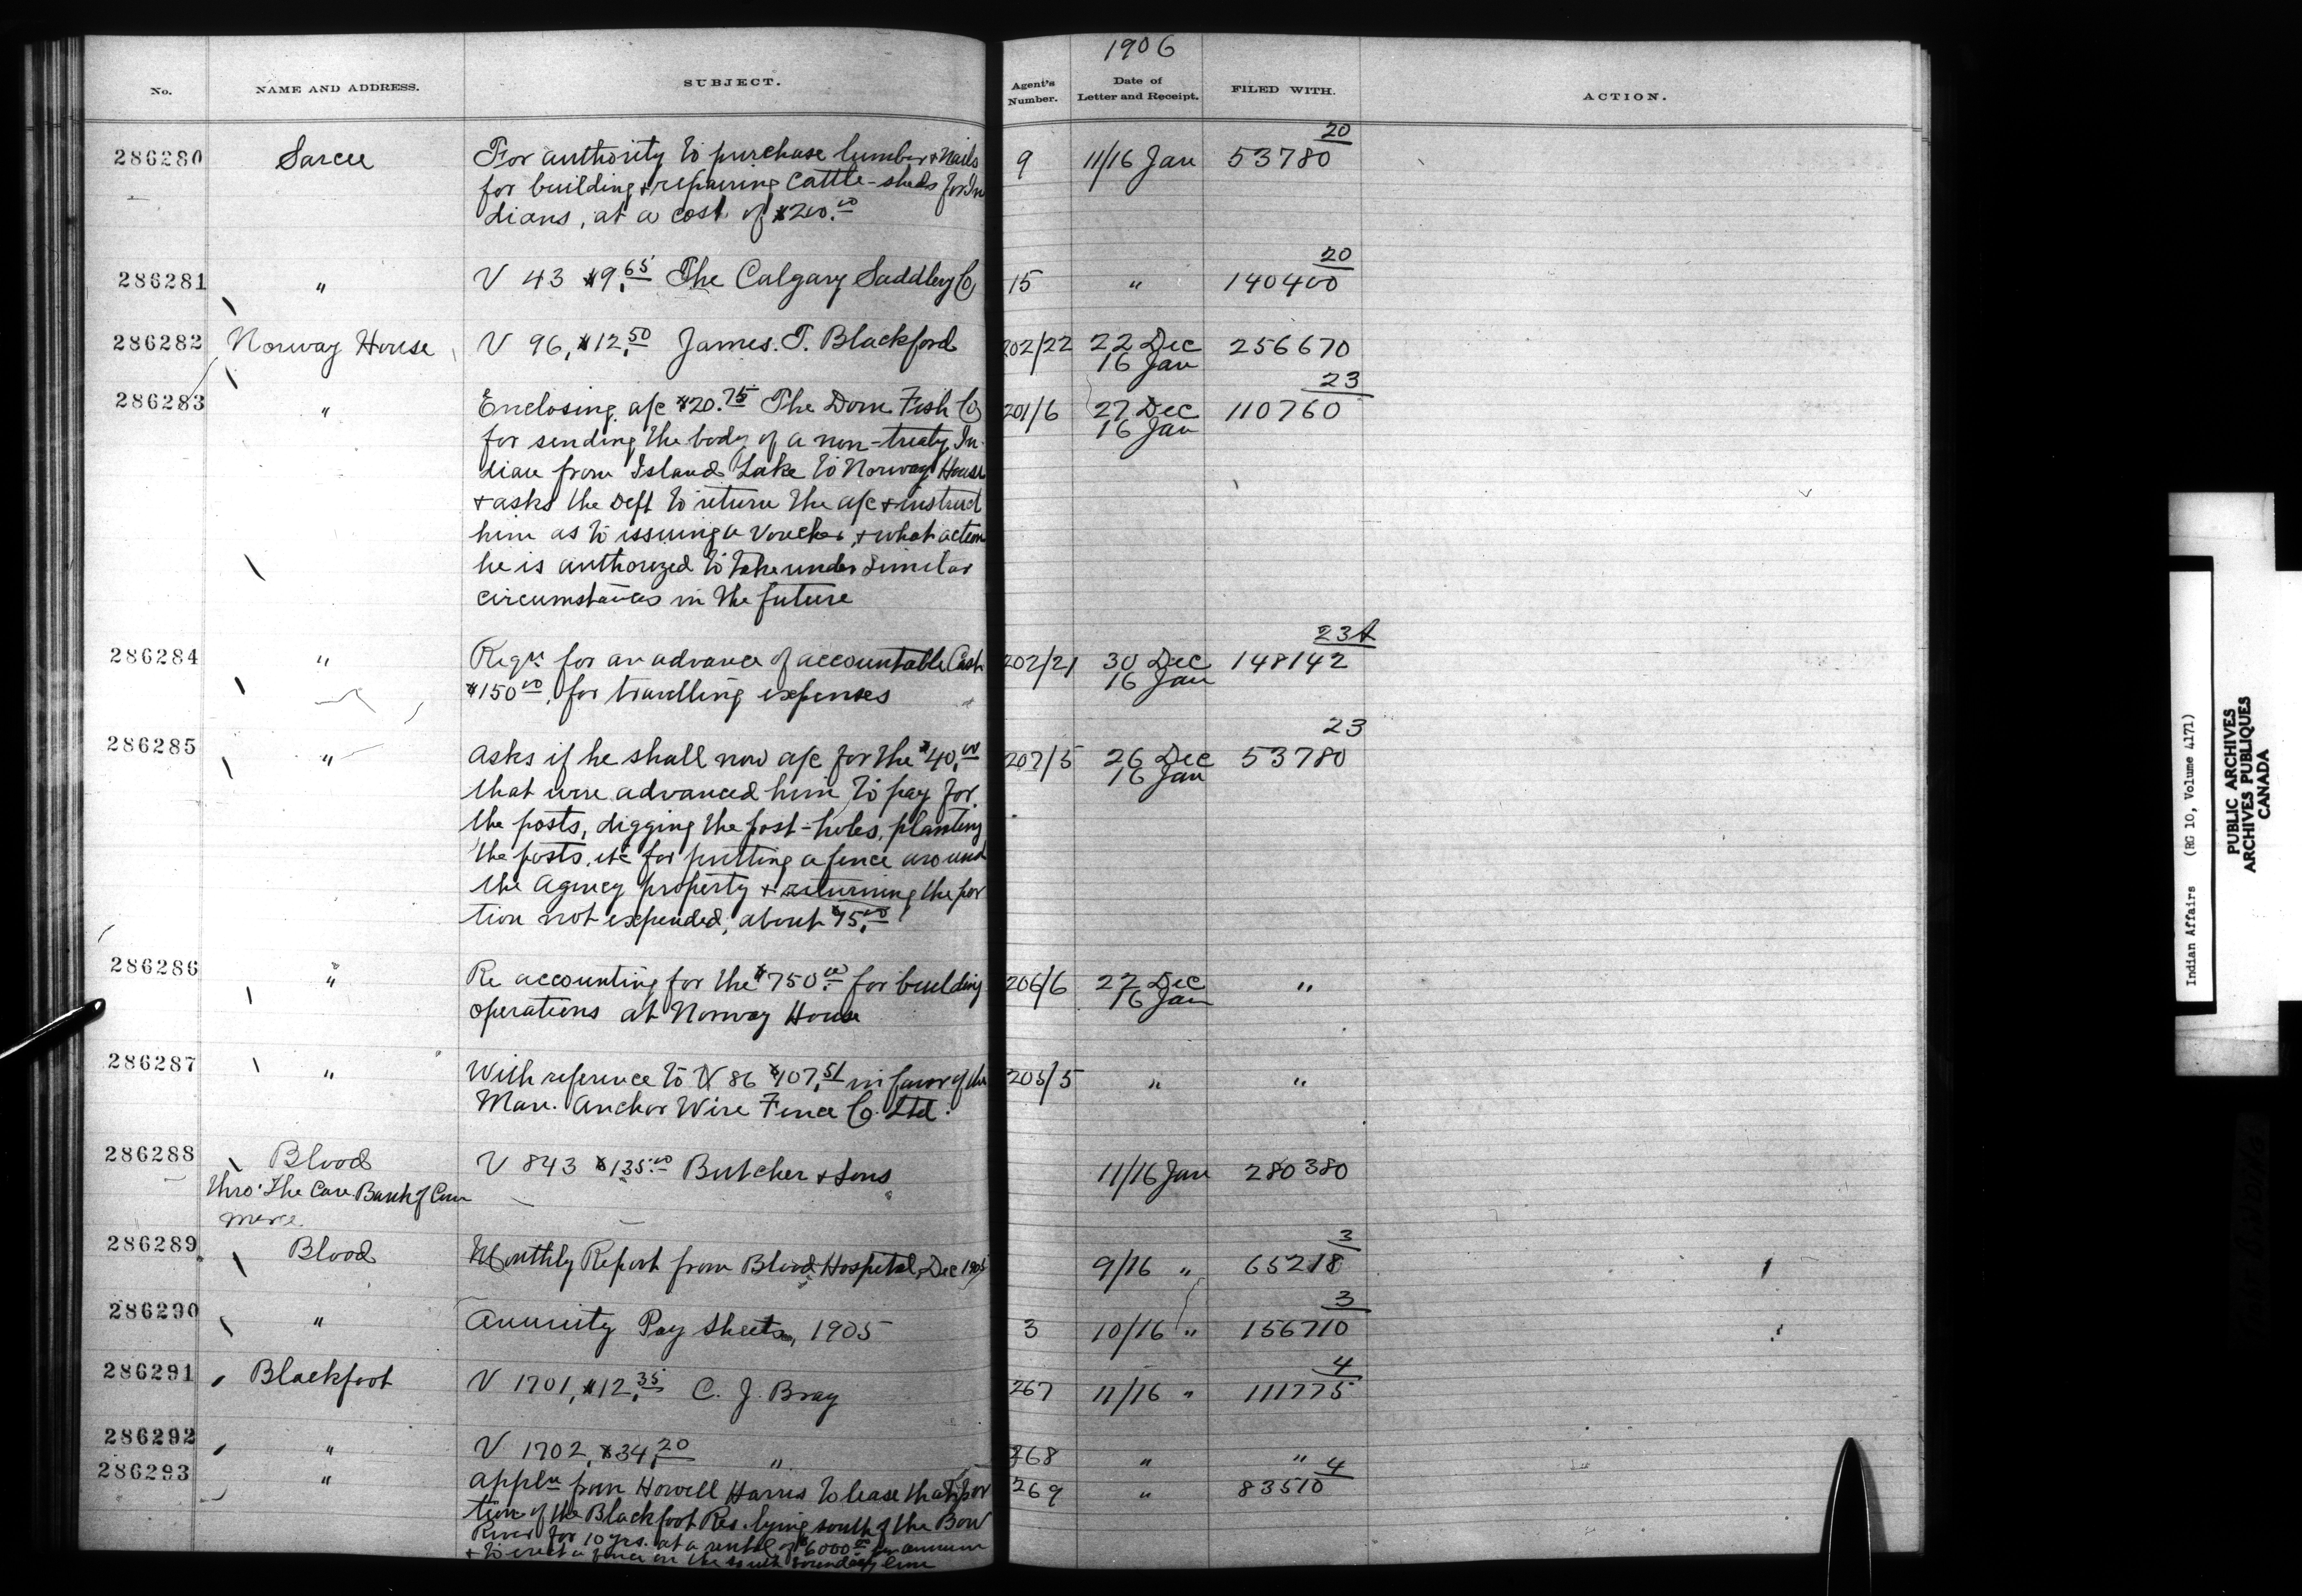 1906
No. NAME AND ADDRESS. SUBJECT. Agent's Number. Date of Letter and Receipt. FILED WITH. ACTION.
20
286280 Sarcee For authority to purchase lumber & nails 9 11/16 Jan 53780
for building & repairing cattle-sheds for In
dians, at a cost of $200.00
20
286281 " V 43 $9.65 The Calgary Saddlery Co 15 " 140400
286282 Norway House V 96, $12.50 James. T. Blackford 202/22 22 Dec 256670
16 Jan
23
286283 " Enclosing a/c $20.75 The Dom. Fish Co 201/6 27 Dec 110760
for sending the body of a non-treaty In- 16 Jan
dian from Island Lake to Norway House
& asks the Dept to return the a/c & instruct
him as to issuing a voucher, & what action
he is authorized to take under similar
circumstances in the future
23A
286284 " Reqn for an advance of accountable Cash 202/21 30 Dec 148142
$150.00, for travelling expenses 16 Jan
23
286285 " Asks if he shall now a/c for the $40.00 207/5 26 Dec 53780
that were advanced him to pay for 16 Jan
the posts, digging the post-holes, planting
the posts, etc for putting a fence around
the Agency property & returning the por
tion not expended, about $15.00
286286 " Re accounting for the $750.00 for building 206/6 27 Dec "
operations at Norway House 16 Jan
286287 " With reference to V 86 $107.51 in favor of the 205/5 " "
Man. Anchor Wire Fence Co. Ltd.
286288 Blood V 843 $135.00 Butcher & Sons 11/16 Jan 280380
thro' The Can. Bank of Com
merce.
3
286289 Blood Monthly Report from Blood Hospital, Dec 1905 9/16 " 65218
3
286290 " Annuity Pay Sheets, 1905 3 10/16 " 156710
4
286291 Blackfoot V 1701, $12.35 C. J. Bray 267 11/16 " 111775
286292 " V 1702, $34.20 " 268 " "
4
286293 " Appln from Howell Harris to lease that por 269 " 83510
tion of the Blackfoot Res. lying south of the Bow
River for 10 yrs. at a rental of $6000.00 per annum
& to erect a fence on the south boundary line
Indian Affairs (RG 10, Volume 4171)
PUBLIC ARCHIVES
ARCHIVES PUBLIQUES
CANADA